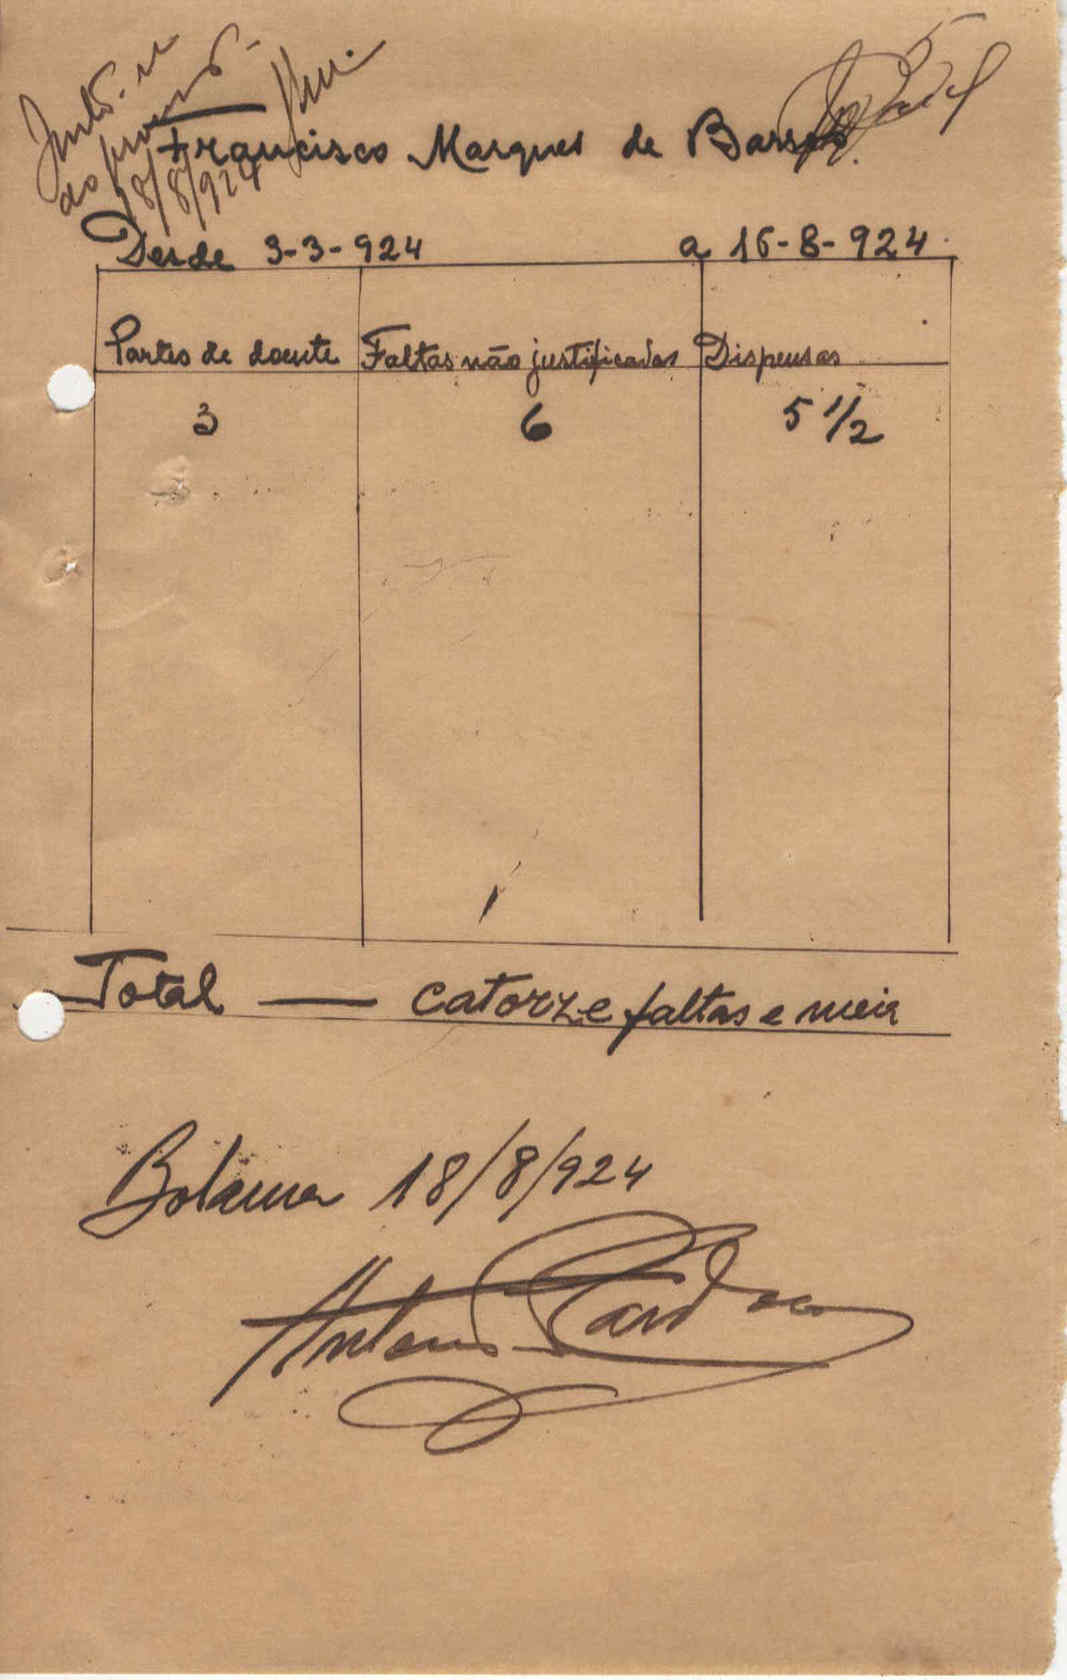 Junte-se
ao processo
18/8/924
Francisco Marques de Barros
Desde 3-3-924 a 16-8-924
Partes de doente Faltas não justificadas Dispensas
3 6 5 1/2
Total — catorze faltas e meia
Bolama 18/8/924
Antonio Cardoso